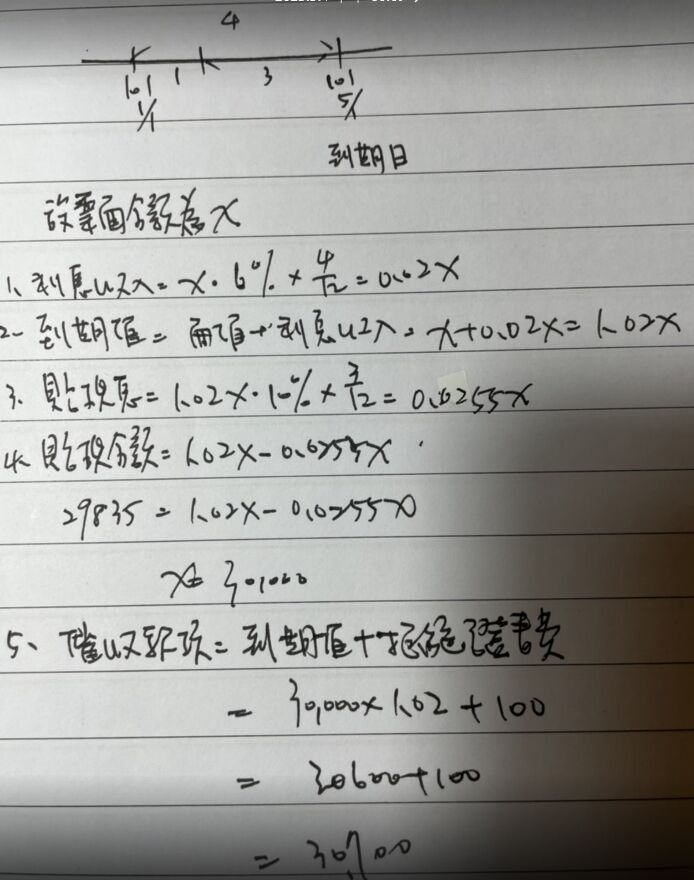 4
1 3
101 101
1/1 5/1
到期日
設票面金額為x
1、利息收入=x·6%×4/12=0.02x
2、到期值=面值+利息收入=x+0.02x=1.02x
3、貼現息=1.02x·10%×3/12=0.0255x
4、貼現金額=1.02x-0.0255x
29835=1.02x-0.0255x
x=30,000
5、催收款項=到期值+拒絕證書費
=30,000×1.02+100
=30600+100
=30700